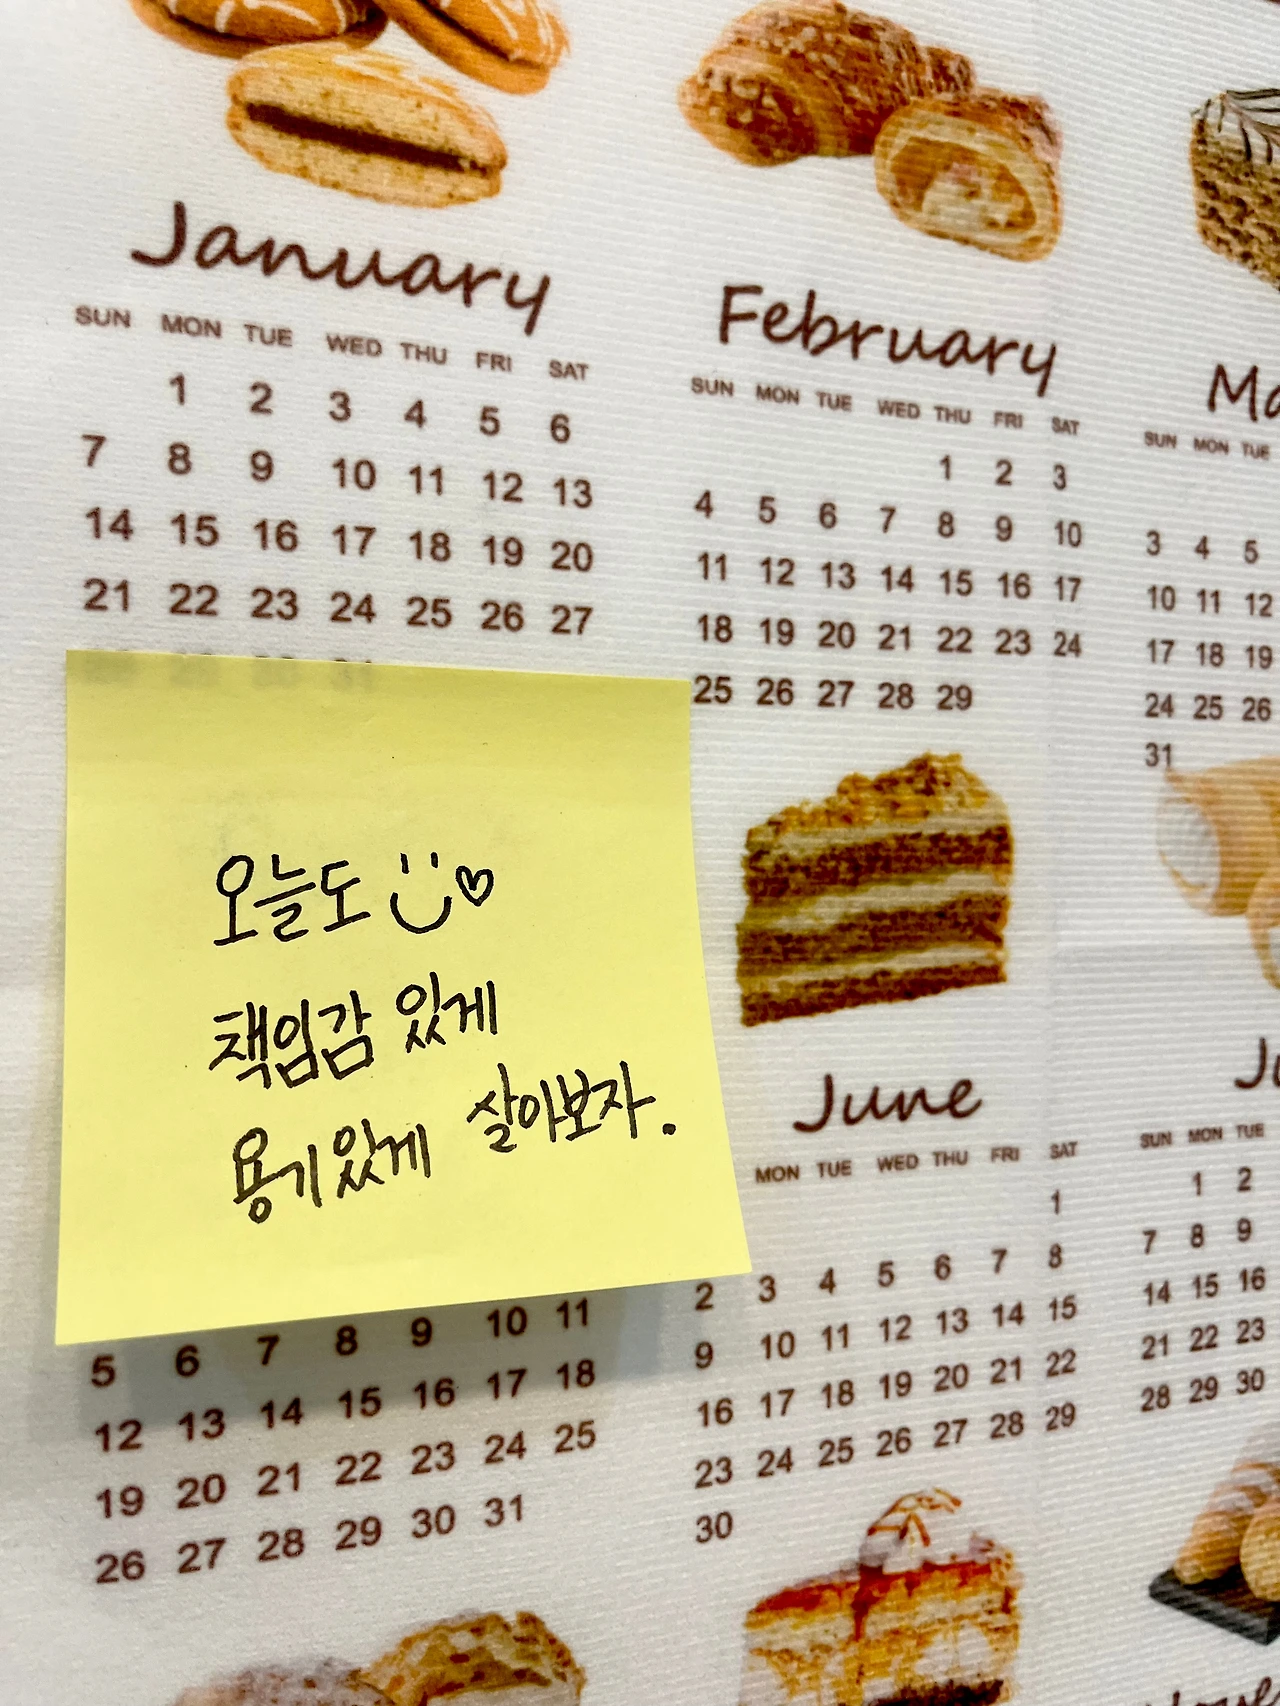 January
SUN MON TUE WED THU FRI SAT
1 2 3 4 5 6
7 8 9 10 11 12 13
14 15 16 17 18 19 20
21 22 23 24 25 26 27
February
SUN MON TUE WED THU FRI SAT
1 2 3
4 5 6 7 8 9 10
11 12 13 14 15 16 17
18 19 20 21 22 23 24
25 26 27 28 29
SUN MON TUE
3 4 5
10 11 12
17 18 19
24 25 26
31
오늘도
책임감 있게
용기있게 살아보자.
5 6 7 8 9 10 11
12 13 14 15 16 17 18
19 20 21 22 23 24 25
26 27 28 29 30 31
June
MON TUE WED THU FRI SAT
1
2 3 4 5 6 7 8
9 10 11 12 13 14 15
16 17 18 19 20 21 22
23 24 25 26 27 28 29
30
SUN MON TUE
1 2
7 8 9
14 15 16
21 22 23
28 29 30